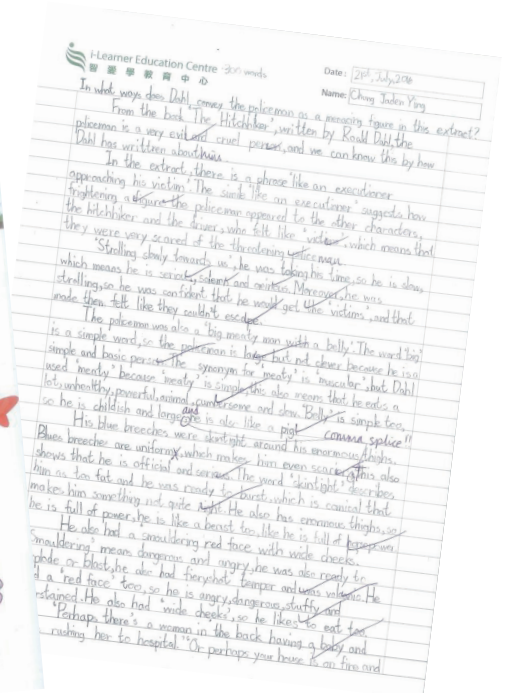 i-Learner Education Centre 300 words
智愛學教育中心
Date: 21st, July, 2018
Name: Chung Jaden Ying
In what ways does Dahl convey the policeman as a menacing figure in this extract?
From the book 'The Hitchhiker', written by Roald Dahl, the
policeman is a very evil, cruel person, and we can know this by how
Dahl has written about him.
In the extract, there is a phrase 'like an executioner
approaching his victim'. The simile 'like an executioner' suggests how
frightening a figure the policeman appeared to the other characters,
the hitchhiker and the driver, who felt like 'victims', which means that
they were very scared of the threatening policeman.
'Strolling slowly towards us', he was taking his time, so he is slow,
which means he is serious, solemn and Moreover, he was
strolling, so he was confident that he would get the 'victims', and that
made them felt like they couldn't escape.
The policeman was also a 'big meaty man with a belly'. The word 'big'
is a simple word, so the policeman is large, but not clever because he is a
simple and basic person. The synonym for 'meaty' is muscular, but Dahl
used 'meaty' because 'meaty' is simple, this also means that he eats a
lot, unhealthy, powerful, animal, cumbersome and slow. 'Belly' is simple too,
so he is childish and large, and he is also like a pig! comma splice"
His blue breeches were skintight around his enormous thighs.
Blues breeches are uniform, which makes him even scary. This also
shows that he is official and serious. The word 'skintight' describes
him as too fat and he was ready to burst, which is comical that
makes him something not quite right. He also has enormous thighs, so
he is full of power, he is like a beast too, like he is full of power.
He also had a smouldering red face with wide cheeks.
Smouldering' means dangerous and angry, he was also ready to
plode or blast, he also had fieryhot temper and was He
d a 'red face' too, so he is angry, dangerous, stuffy and
strained. He also had 'wide cheeks', so he likes to eat too
'Perhaps there's a woman in the back having a baby and
rushing her to hospital." "Or perhaps your house is on fire and